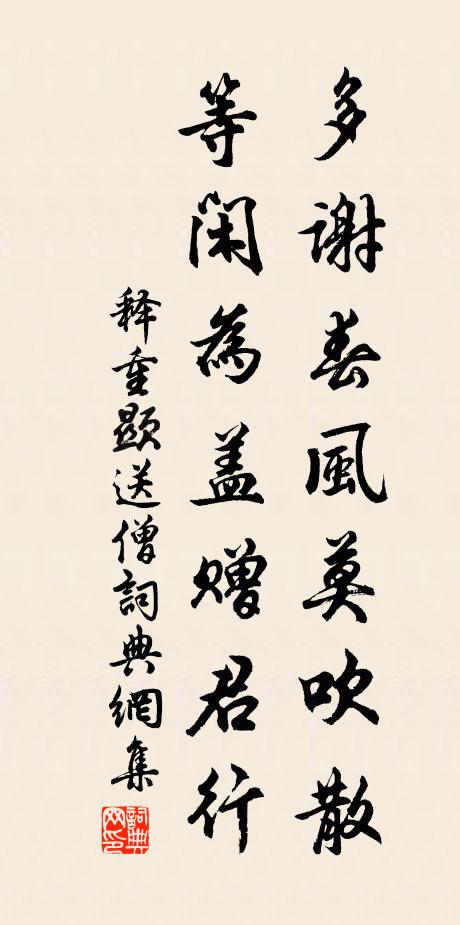 多謝春風莫吹散
等閑為盖贈君行
释重顯送僧詞典網集
詞典網印